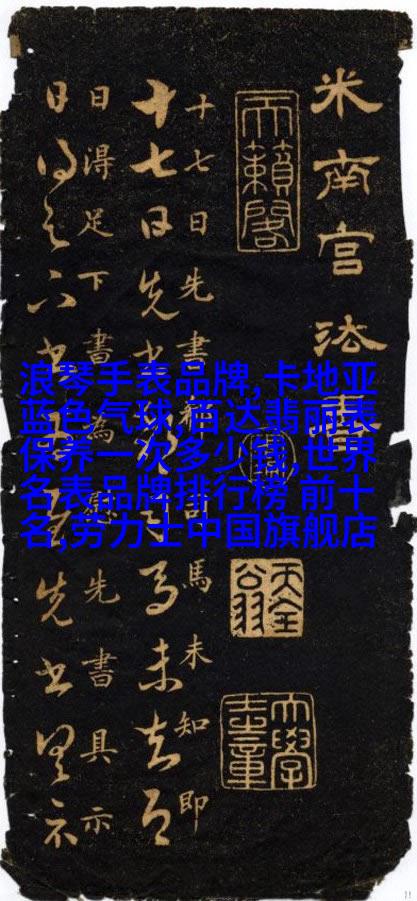 米南宫法書
天籟閣
十七日先書郗司馬未知即
十七日先書郗司馬未去即
日得足下書為慰先書具示
浪琴手表品牌,卡地亚
蓝色气球,百达翡丽表
保养一次多少钱,世界
名表品牌排行榜 前十
名,劳力士中国旗舰店